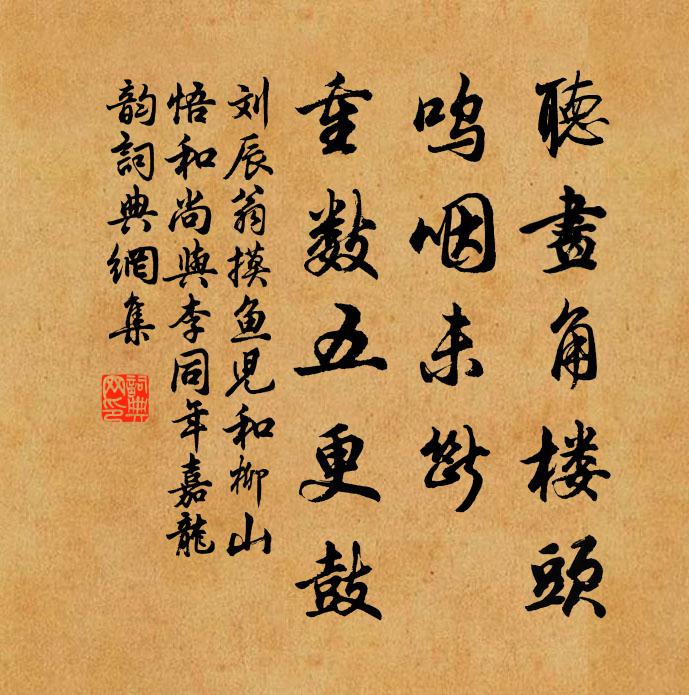 聽畫角楼頭
嗚咽未斷
重数五更鼓
刘辰翁摸鱼児和柳山
悟和尚與李同年嘉龍
韵詞典網集
詞典网印